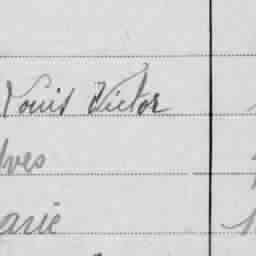 Louis Victor
Yves
arie